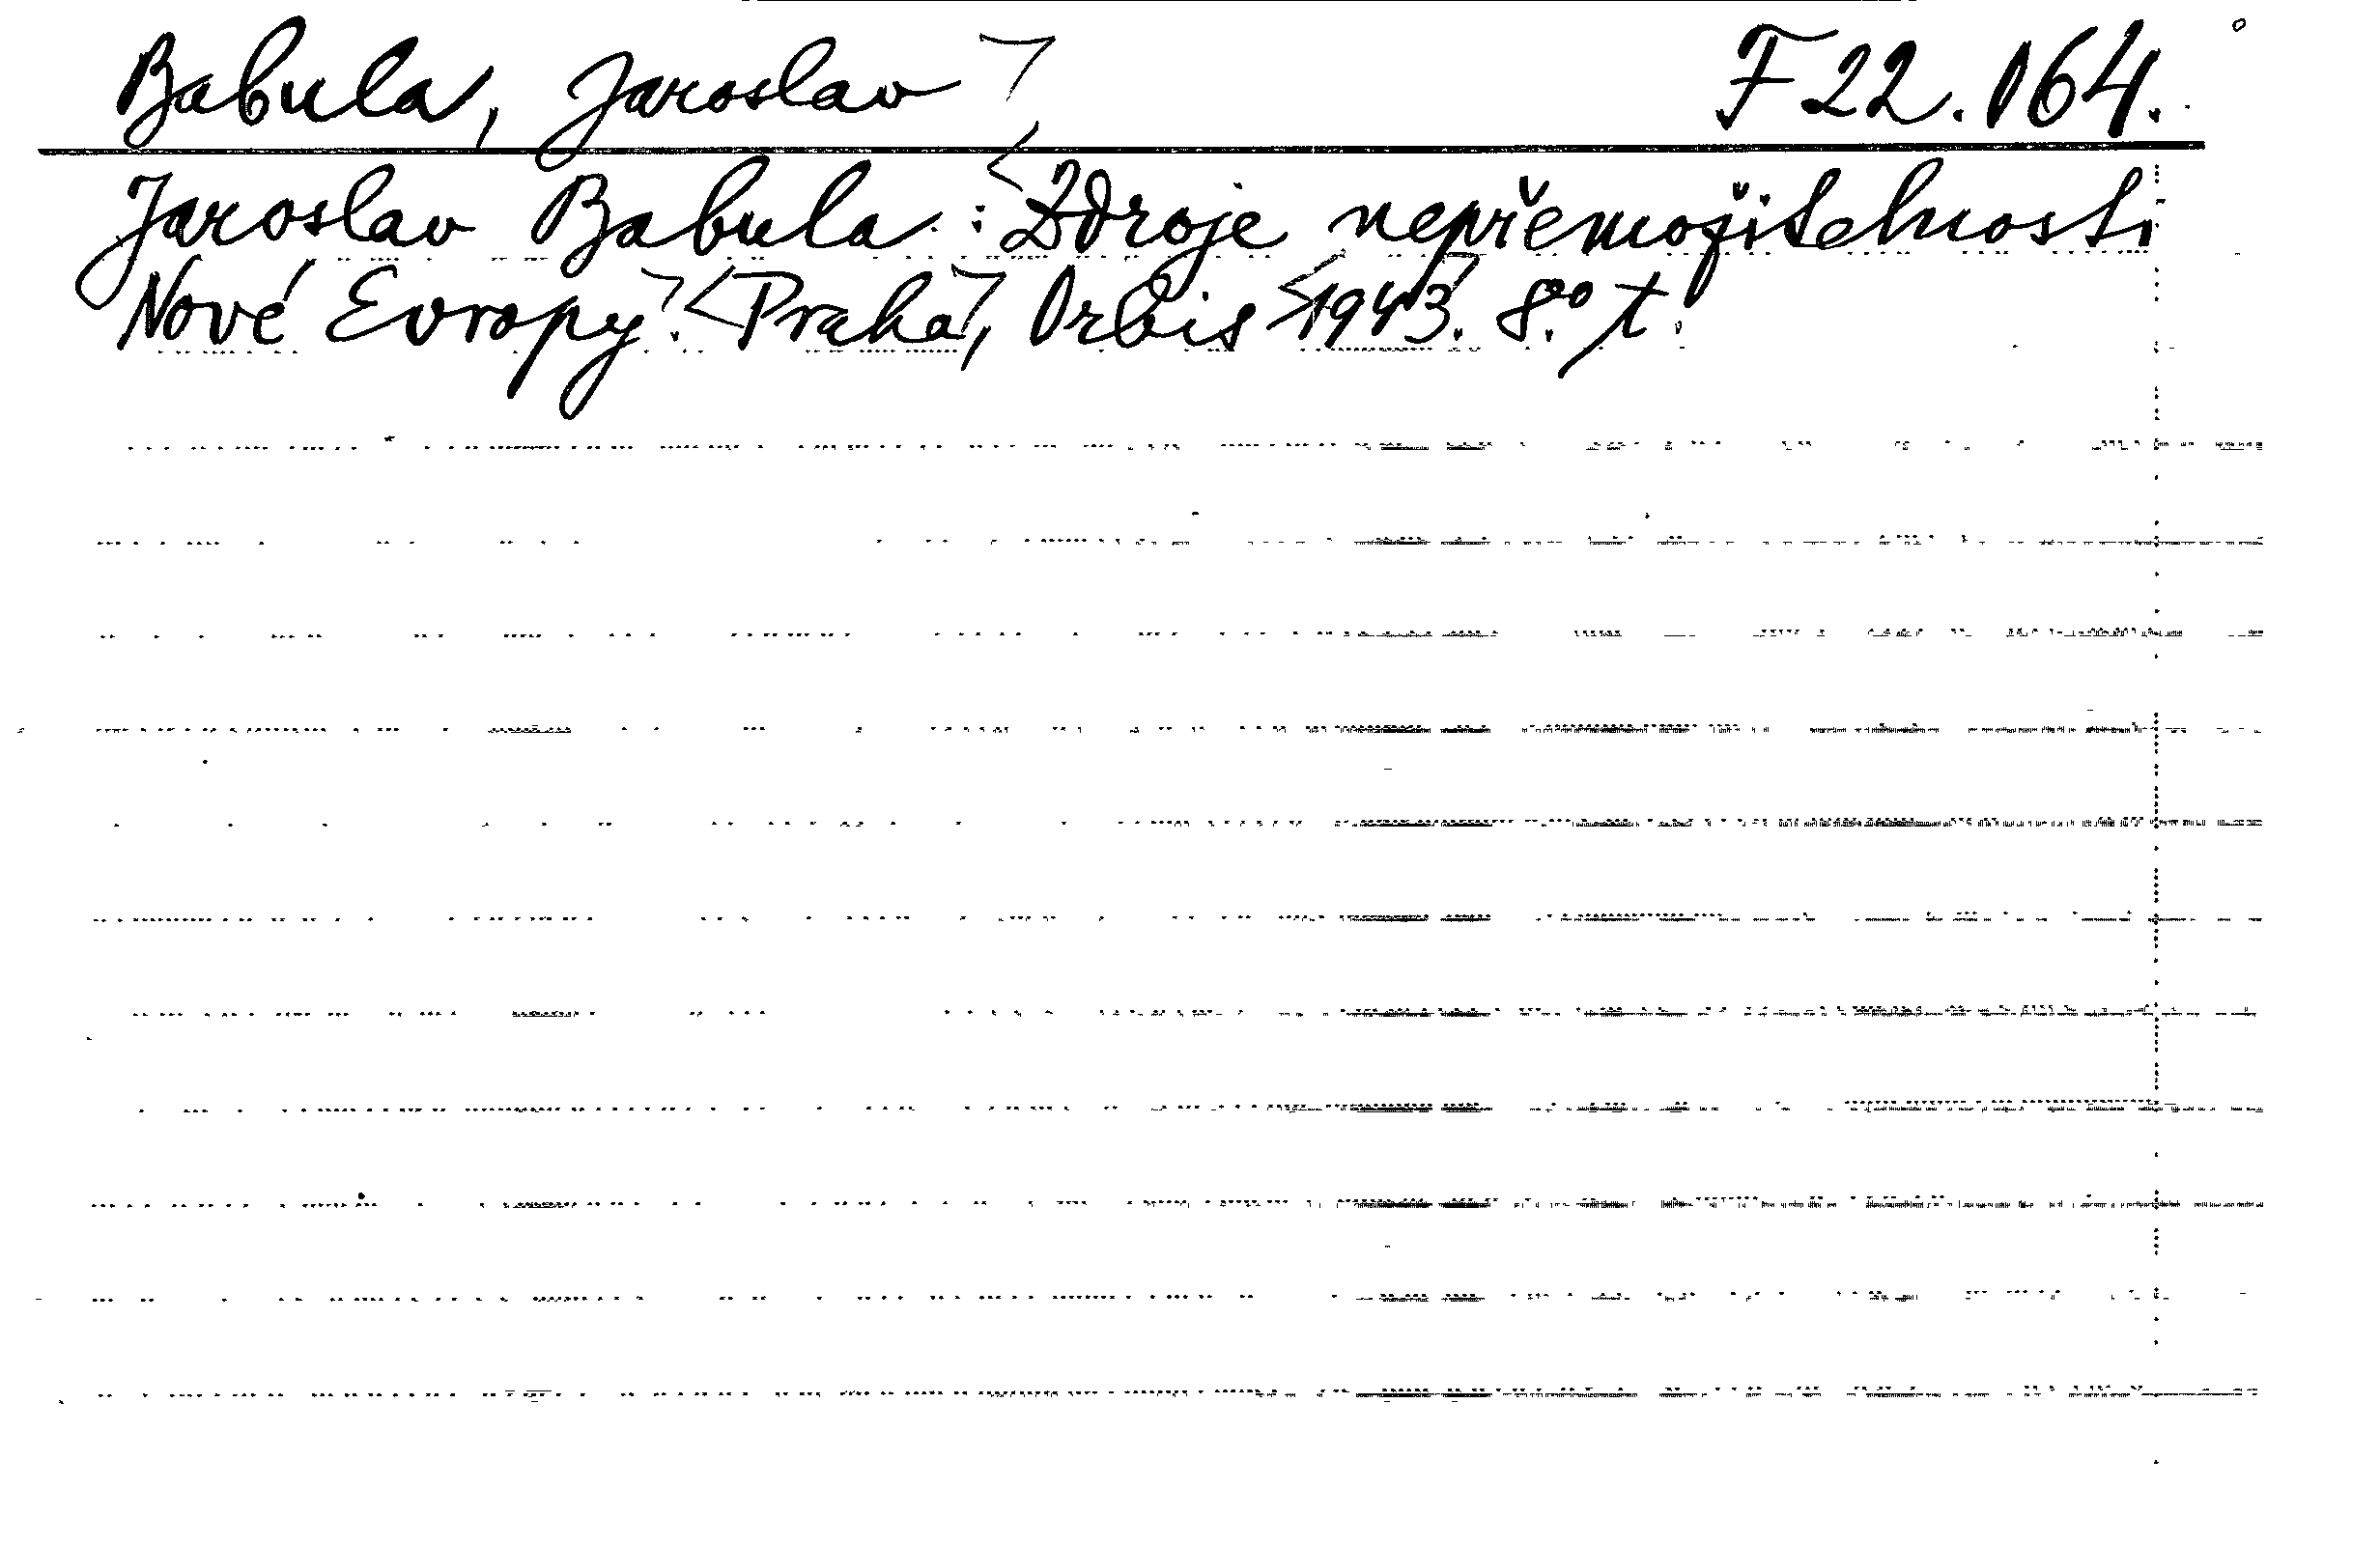 Babula, Jaroslav F 22.064.
Jaroslav Babula: Zdroje nepřemožitelnosti
Nové Evropy. Praha, Orbis 1943. 8.° t.